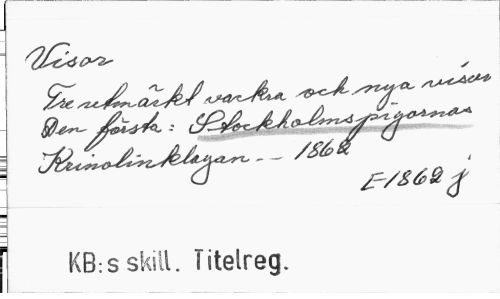 Visor
Tre utmärkt vackra och nya visor
Den första: Stockholmspigornas
Krinolinklagan -- 1862
E1862 j
KB:s skill. Titelreg.